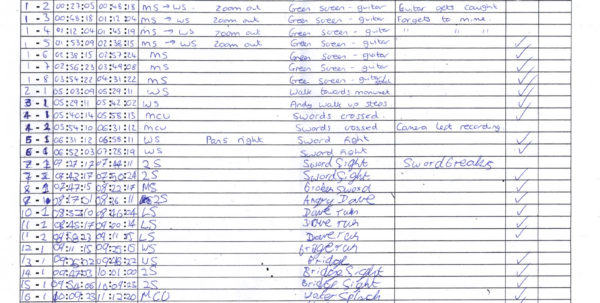 1 - 2 00:27:05 00:48:18 MS → WS Zoom out Green Screen - guitar Guitar gets caught
1 - 3 00:48:18 01:12:04 MS → WS Zoom out Green Screen - guitar Forgets to mime.
1 - 4 01:12:04 01:43:19 MS → WS Zoom out Green Screen - guitar " " "
1 - 5 01:53:09 02:38:15 MS → WS Zoom out Green Screen - guitar ✓
1 - 6 02:38:15 02:57:24 MS Green Screen - guitar ✓
1 - 7 02:56:23 03:49:08 MS Green Screen - guitar ✓
1 - 8 03:54:22 04:31:22 MS Green Screen - guitar ✓
2 - 1 05:03:09 05:29:11 WS Walk towards monument ✓
3 - 1 05:29:11 05:42:02 WS Andy walk up steps ✓
4 - 1 05:40:14 05:58:15 MCU Swords crossed. ✓
4 - 2 05:54:10 06:31:12 MCU Swords crossed Camera left recording
5 - 1 06:31:12 06:58:11 WS Pans right Sword fight ✓
6 - 1 06:52:03 07:28:19 WS Sword fight ✓
7 - 1 07:27:12 07:44:11 2S Sword fight Sword Breaks
7 - 2 2S Sword fight ✓
8 - 1 08:22:17 MS Sword ✓
9 - 1 08:17:01 2S Angry Dave ✓
10 - 1 LS Dave run ✓
11 - 1 LS Dave run ✓
11 - 2 LS Dave run ✓
12 - 1 09:11:15 WS Bridge run ✓
13 - 1 WS Bridge ✓
14 - 1 10:01:00 2S Bridge fight ✓
15 - 1 2S Bridge fight ✓
16 - 1 MCU Water Splash ✓